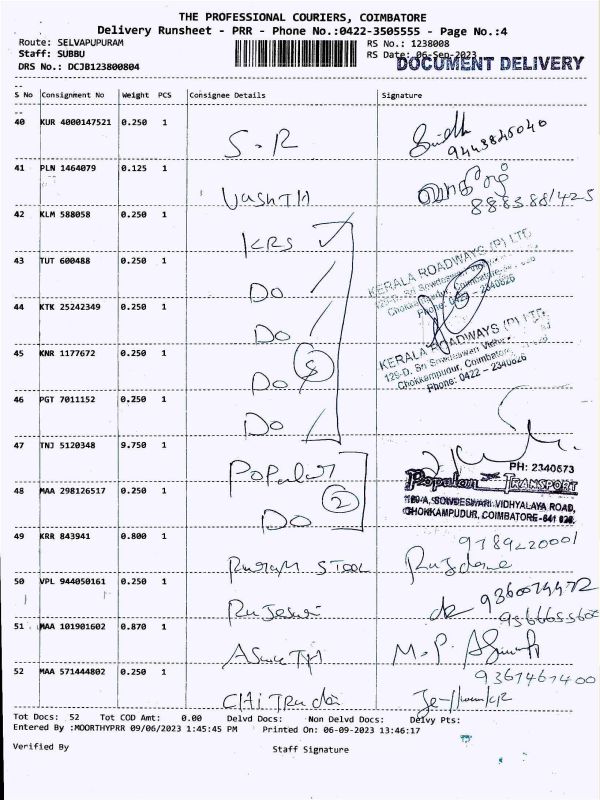 THE PROFESSIONAL COURIERS, COIMBATORE
Delivery Runsheet - PRR - Phone No.:0422-3505555 - Page No.:4
Route: SELVAPUPURAM
RS No.: 1238008
Staff: SUBBU
RS Date: 06-Sep-2023
DRS No.: DCJB123800804
DOCUMENT DELIVERY
S No Consignment No Weight PCS Consignee Details Signature
40 KUR 4000147521 0.250 1
S.R
9443845040
41 PLN 1464079 0.125 1
VASHTH
42 KLM 588058 0.250 1
KRS
43 TUT 600488 0.250 1
Do
KERALA ROADWAYS (P) LTD
Phone: 0422 - 2340626
44 KTK 25242349 0.250 1
Do
45 KNR 1177672 0.250 1
Do
KERALA ROADWAYS (P) LTD.
Chokkampudur, Coimbatore
Phone: 0422 - 2340626
46 PGT 7011152 0.250 1
Do
47 TNJ 5120348 9.750 1
Popular
PH: 2340573
Popular TRANSPORT
189/A, SOWDESWARI VIDHYALAYA ROAD,
CHOKKAMPUDUR, COIMBATORE-641
48 MAA 298126517 0.250 1
2
Do
49 KRR 843941 0.800 1
9789220001
STEEL
50 VPL 944050161 0.250 1
51 MAA 101901602 0.870 1
M.P.
52 MAA 571444802 0.250 1
9367467400
Tot Docs: 52 Tot COD Amt: 0.00 Delvd Docs: Non Delvd Docs: Delvy Pts:
Entered By :MOORTHYPRR 09/06/2023 1:45:45 PM Printed On: 06-09-2023 13:46:17
Verified By
Staff Signature